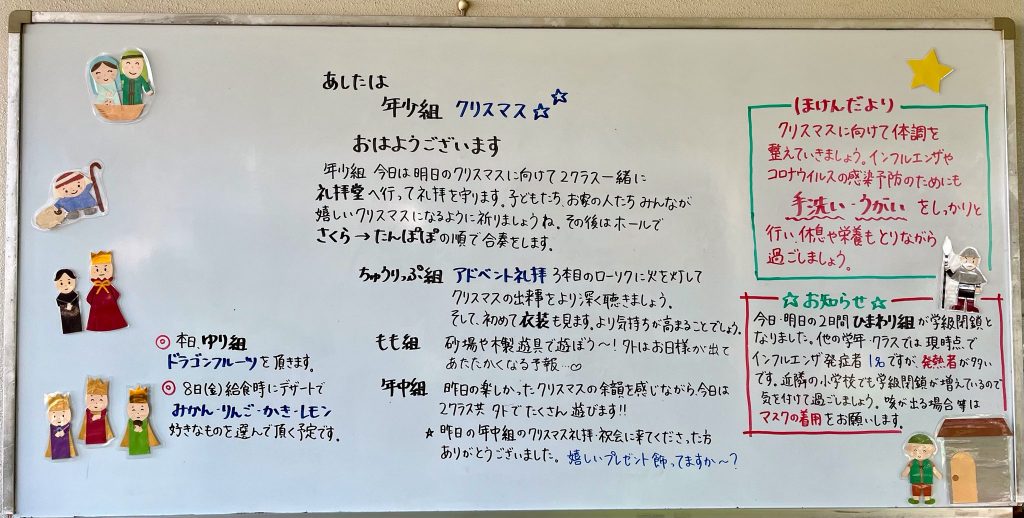 あしたは
年少組 クリスマス☆☆
おはようございます
年少組 今日は明日のクリスマスに向けて2クラス一緒に
礼拝堂へ行って礼拝を守ります。子どもたち、お家の人たちみんなが
嬉しいクリスマスになるように祈りましょうね。その後はホールで
さくら→たんぽぽの順で合奏をします。
ちゅうりっぷ組 アドベント礼拝 3本目のローソクに火を灯して
クリスマスの出来事をより深く聴きましょう。
そして、初めて衣装も見ます。より気持ちが高まることでしょう。
もも組 砂場や木製遊具で遊ぼう〜!外はお日様が出て
あたたかくなる予報…♡
年中組 昨日の楽しかったクリスマスの余韻を感じながら、今日は
2クラス共 外でたくさん遊びます!!
★昨日の年中組のクリスマス礼拝・祝会に来てくださった方
ありがとうございました。嬉しいプレゼント飾ってますか〜?
◎本日、ゆり組
ドラゴンフルーツを頂きます。
◎8日(金)給食時にデザートで
みかん・りんご・かき・レモン
好きなものを選んで頂く予定です。
ほけんだより
クリスマスに向けて体調を
整えていきましょう。インフルエンザや
コロナウイルスの感染予防のためにも
手洗い・うがいをしっかりと
行い、休息や栄養もとりながら
過ごしましょう。
☆お知らせ☆
今日・明日の2日間ひまわり組が学級閉鎖と
なりました。他の学年・クラスでは現時点で
インフルエンザ発症者1名ですが、発熱者が多い
です。近隣の小学校でも学級閉鎖が増えているので
気を付けて過ごしましょう。咳が出る場合等は
マスクの着用をお願いします。